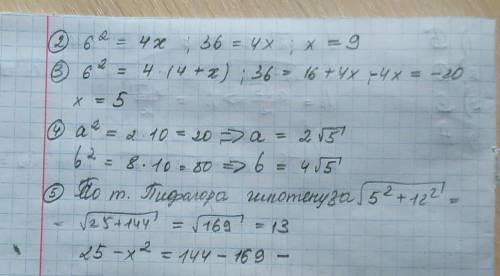 ② 6² = 4x ; 36 = 4x ; x = 9
③ 6² = 4 · (4 + x) ; 36 = 16 + 4x ; -4x = -20
x = 5
④ a² = 2 · 10 = 20 => a = 2√5
b² = 8 · 10 = 80 => b = 4√5
⑤ По т. Пифагора гипотенуза √5² + 12² =
= √25 + 144 = √169 = 13
25 - x² = 144 - 169 -